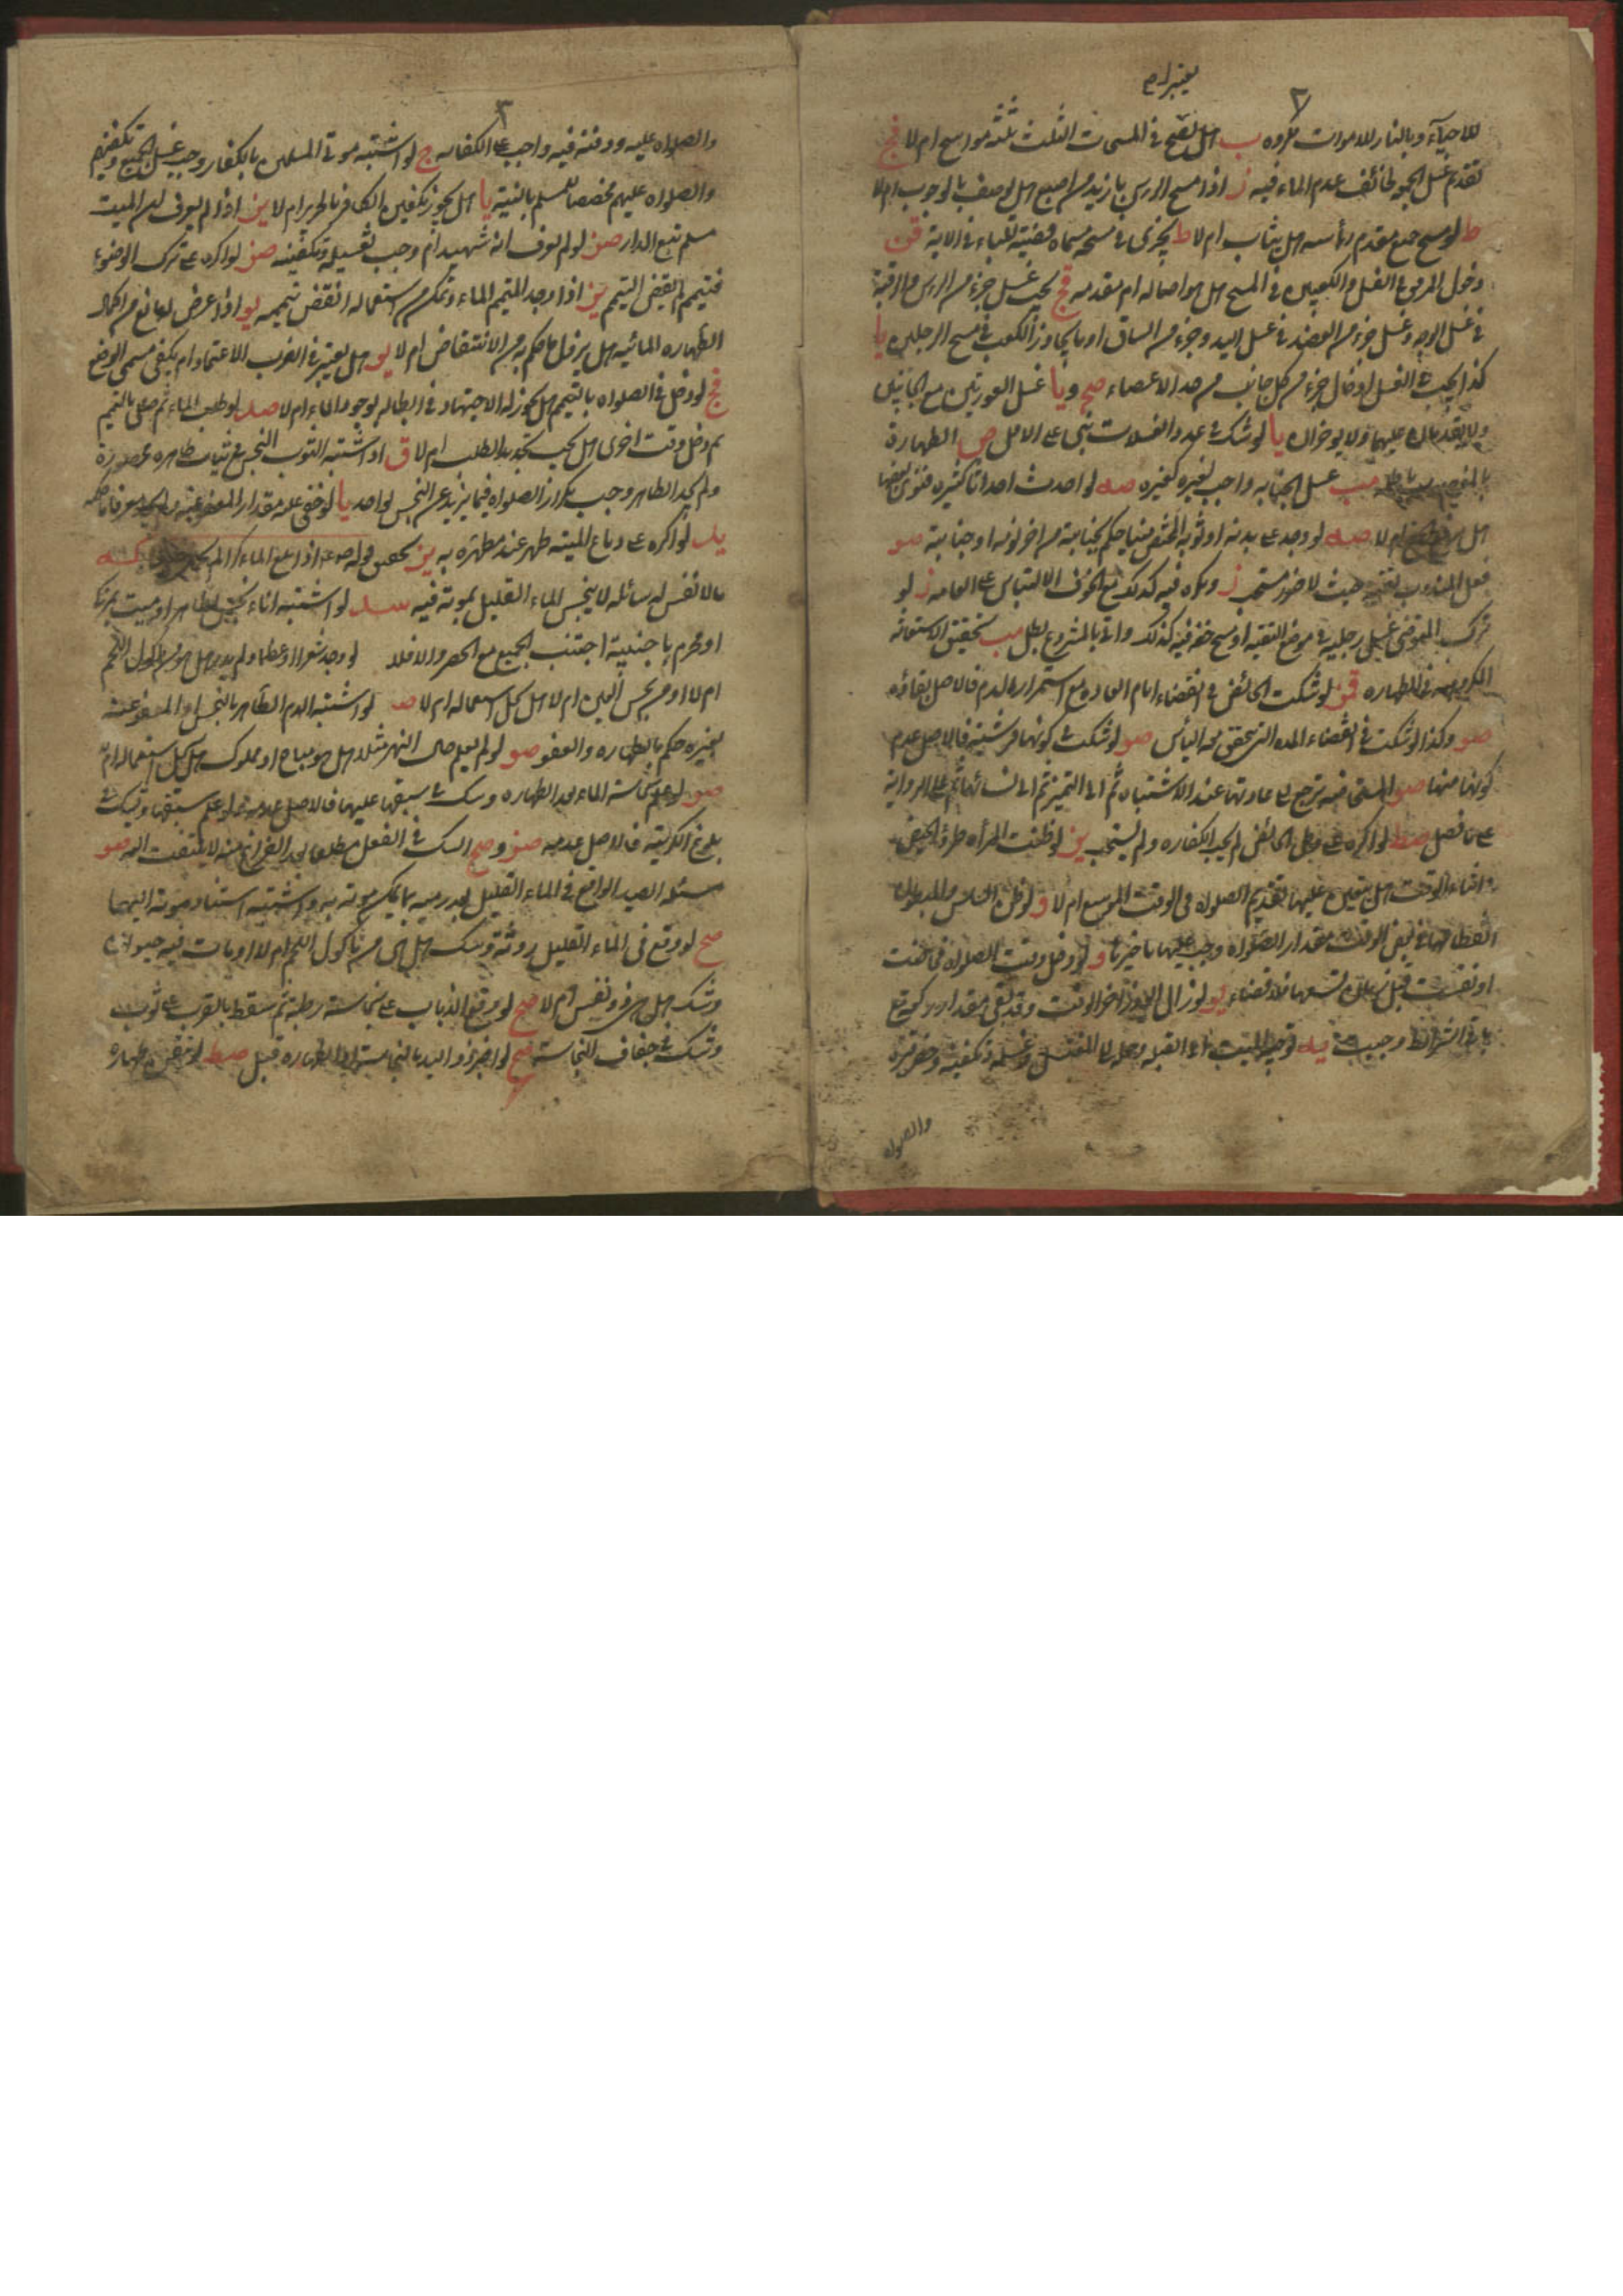 يعتبر ام
٢
للاحيآء وبالنار للاموات مكروه ب هل يصح في المسحات الثلث ثلثة مواسح ام لا قح
تقديم غسل الجمعة لخائف عدم الماء فيه ز اذا مسح الراس بازيد من اصبع هل يوصف بالوجوب ام لا
ط لو مسح جميع مقدم رأسه هل يثاب ام لا ط يجزى في مسحه مسماه قضية للباء في الاية قن
دخول المرفق في الغسل والكعبين في المسح هل هو اصالة ام مقدمة قح يجب غسل جزء من الراس والرقبة
في غسل الوجه وغسل جزء من العضد في غسل اليد وجزء من الساق او ما يجاوز الكعب في مسح الرجلين يا
كذا يجب في الغسل ادخال جزء من كل جانب من حد الاعضاء صح و يا غسل العورتين مع الجانبين
ولا يقدمان عليهما ولا يوخران يا لو شك في عدد الغسلات بنى على الاقل ص الطهارة
غسل الجنابة واجب لغيره كغيره صه لو احدث احداثا كثيره فنوى بعضها
هل يرتفع الجميع ام لا صه لو وجد على بدنه او ثوبه المختص منيا حكم بجنابته من اخر نومه او جنابته صو
فعل المندوب لا ضرر مستحب ز ويكره فيه كذلك مع خوف الالتباس على العامه ز لو
ترك المتوضى غسل رجليه في موضع التقية او مسح خفيه كذلك واتى بالمشروع بطل يب تحقيق الاستعانة
المكروهة في الطهاره قن لو شكت الحائض في انقضاء ايام العاده مع استمراره الدم فالاصل بقاؤه
صو وكذا لو شكت في انقضاء المده التي يتحقق معه الياس صو لو شكت في كونها قرشية فالاصل عدم
كونها منها صو المستحاضه ترجع الى عادتها عند الاشتباه ثم الى التميز ثم الى نسائها ثم الى الرواية
على ما فصل صط لو اكره على وطى الحائض لم يجب الكفاره ولم يستحب يز لو ظنت المرأه طروء الحيض
في اثناء الوقت هل يتعين عليها تقديم الصلوه في الوقت الموسع ام لا و لو ظن
انقطاعها في بعض الوقت مقدار الصلوة وجب عليهما تاخيرها و لو دخل وقت الصلوه فحاضت
او نفست قبل زمان يسعها فلا قضاء يو لو زال العذر اخر الوقت وقد بقى مقدار ركعة مع
باقي الشرائط وجبت يه توجيه الميت الى القبلة وحمله الى المغتسل وغسله وتكفينه وحفر قبره
والصلوه
٣
والصلواه عليه ودفنه فيه واجب على الكفايه ج لو اشتبه موتى المسلمين بالكفار وجب غسل الجميع وتكفينهم
والصلواه عليهم مخصصا للمسلم بالنية يا هل يجوز تكفين الكافر بالحرير ام لا يز اذا لم يعرف ان الميت
مسلم تبع الدار صز لو لم يعرف انه شهيد ام وجب تغسيله وتكفينه صز لو اكره على ترك الوضوء
فتيمم انقض التيمم يز اذا وجد المتيمم الماء وتمكن من استعماله انتقض تيممه يو اذا عرض له مانع من اكمال
الطهاره المائيه هل يزول ما حكم به من الانتقاض ام لا يو هل يعتبر في الضرب الاعتماد ام يكفى مسمى الوضع
قح لو دخل في الصلواه بالتيمم هل يجوز له الاجتهاد في ابطاله لوجود الماء ام لا صد لو طلب الماء ثم صلى بالتيمم
ثم دخل وقت اخرى هل يجب تجديد الطلب ام لا ق لو اشتبه الثوب النجس في ثياب طاهره محصورة
ولم يجد الطاهر وجب تكرار الصلواه فيما يزيد عن النجس بواحد يا لو خفى عليه مقدار المعفو عنه
يب لو اكره على دباغ الميته طهر عند مطهره به يز تحقيق قوله ص اذا بلغ الماء كرا لم يحمل خبثا كه
مالا نفس له سائله لا ينجس الماء القليل بموته فيه سد لو اشتبه اناء نجس بطاهر او ميت بمزكا
او محرم باجنبية اجتنب الجميع مع الحصر والا فلا لو وجد شعرا او عظما ولم يدر هل هو من ماكول اللحم
ام لا او من نجس العين ام لا هل يحل استعماله ام لا صد لو اشتبه الدم الطاهر بالنجس او المعفو عنه
بغيره حكم بالطهاره والعفو صو لو لم يعلم حال النهر مثلا هل هو مباح او مملوك هل يحل استعماله ام لا
صو لو علم نجاسة الماء بعد الطهاره وشك في سبقها عليها فالاصل عدمه ولو علم سبقها وشك في
بلوغ الكرية فالاصل عدمه صز و صح الشك في الفعل مطلقا بعد الفراغ منه لا يلتفت اليه صو
مسئله الصيد الواقع في الماء القليل بعد رميه بما يمكن موته به واشتبه استناد موته اليهما
صح لو وقع في الماء القليل روثة وشك هل هى من ماكول اللحم ام لا او مات فيه حيوان
وشك هل هو ذو نفس ام لا صح لو وقع الذباب على نجاسة رطبة ثم سقط بالقرب على ثوب
وشك في جفاف النجاسة صح لو اخبر ذو اليد بالنجاسة او الطهاره قبل صط لو تيقن طهارة